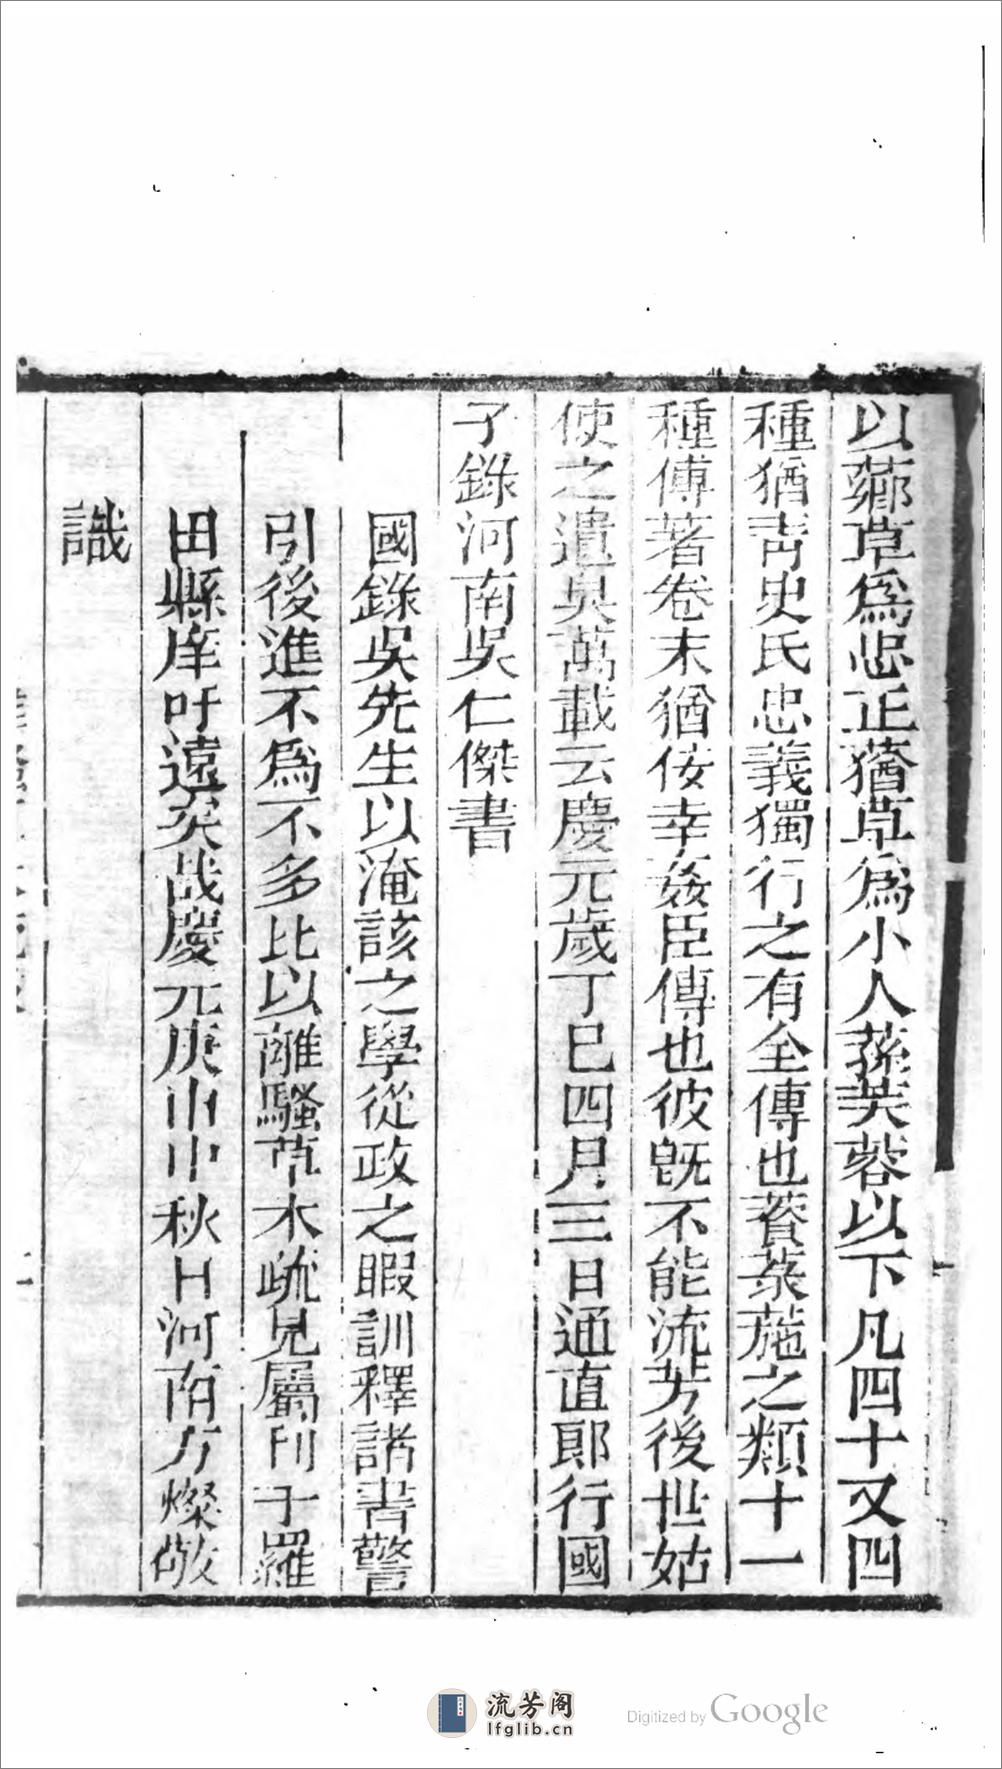 以薌草爲忠正蕕草爲小人蓀芙蓉以下凡四十又四
種猶靑史氏忠義獨行之有全傳也薋菉葹之類十一
種傳著卷末猶佞幸姦臣傳也彼旣不能流芳後世姑
使之遺臭萬載云慶元歲丁巳四月三日通直郎行國
子錄河南吳仁傑書
國錄吳先生以淹該之學從政之暇訓釋諸書警
引後進不爲不多比以離騷草木疏見屬刊于羅
田縣庠吁遠矣哉慶元庚申中秋日河南方燦敬
識
流芳阁
lfglib.cn
Digitized by Google